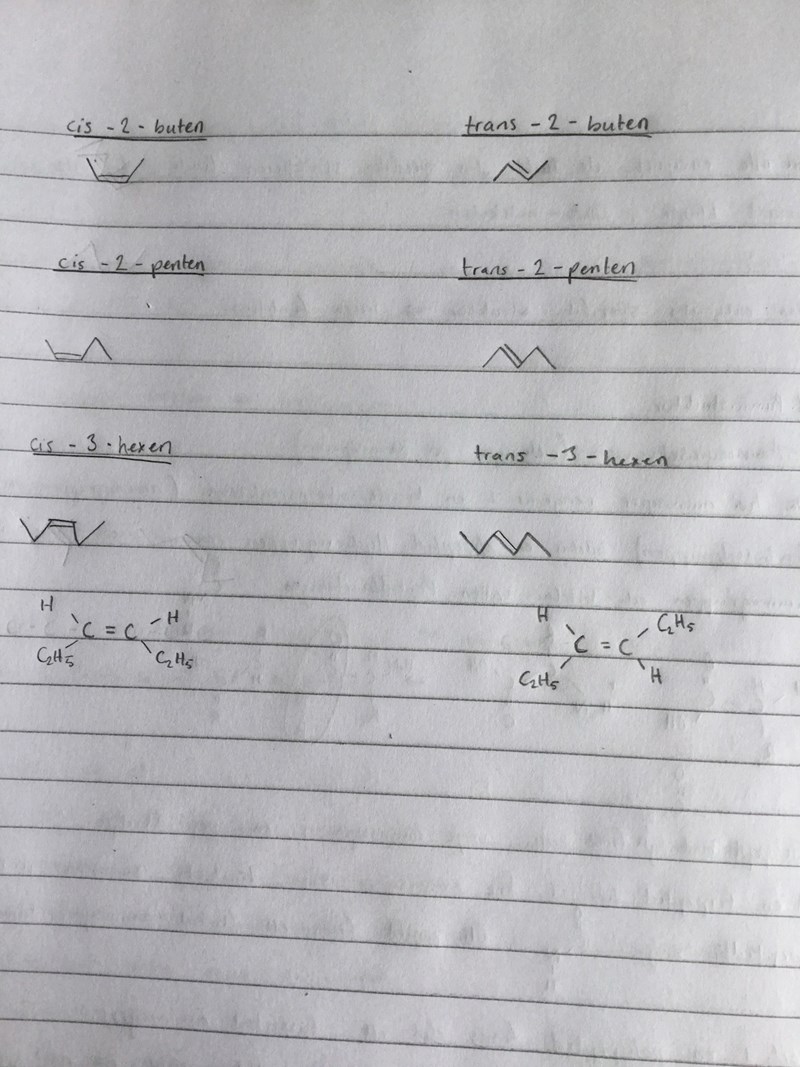 cis - 2 - buten
trans - 2 - buten
cis - 2 - penten
trans - 2 - penten
cis - 3 - hexen
trans - 3 - hexen
H H
C = C
C₂H₅ C₂H₅
H C₂H₅
C = C
C₂H₅ H